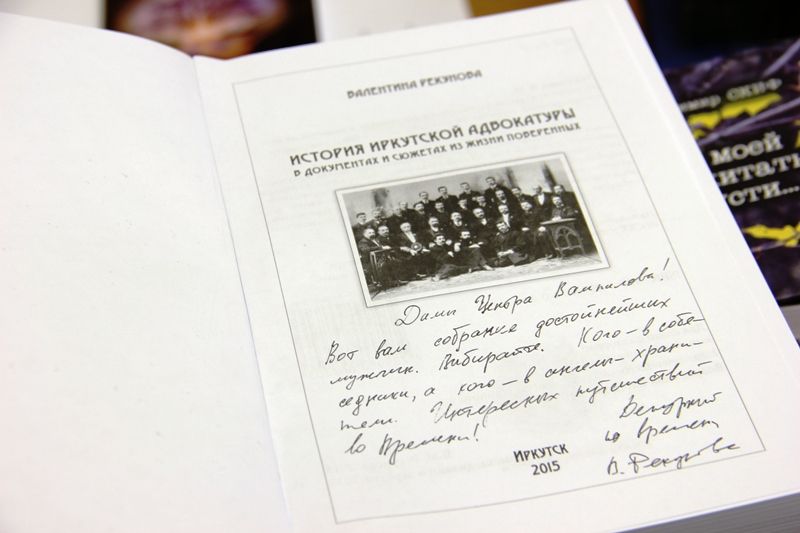 ВАЛЕНТИНА РЕКУНОВА
ИСТОРИЯ ИРКУТСКОЙ АДВОКАТУРЫ
В ДОКУМЕНТАХ И СЮЖЕТАХ ИЗ ЖИЗНИ ПОВЕРЕННЫХ
Дамы Центра Вампилова!
Вот вам собрание достойнейших
мужчин. Выбирайте. Кого – в собе-
седники, а кого – в ангелы-храни-
тели. Интересных путешествий
во Времени!
Дежурный
по времени
В. Рекунова
ИРКУТСК
2015
СКИФ
моей